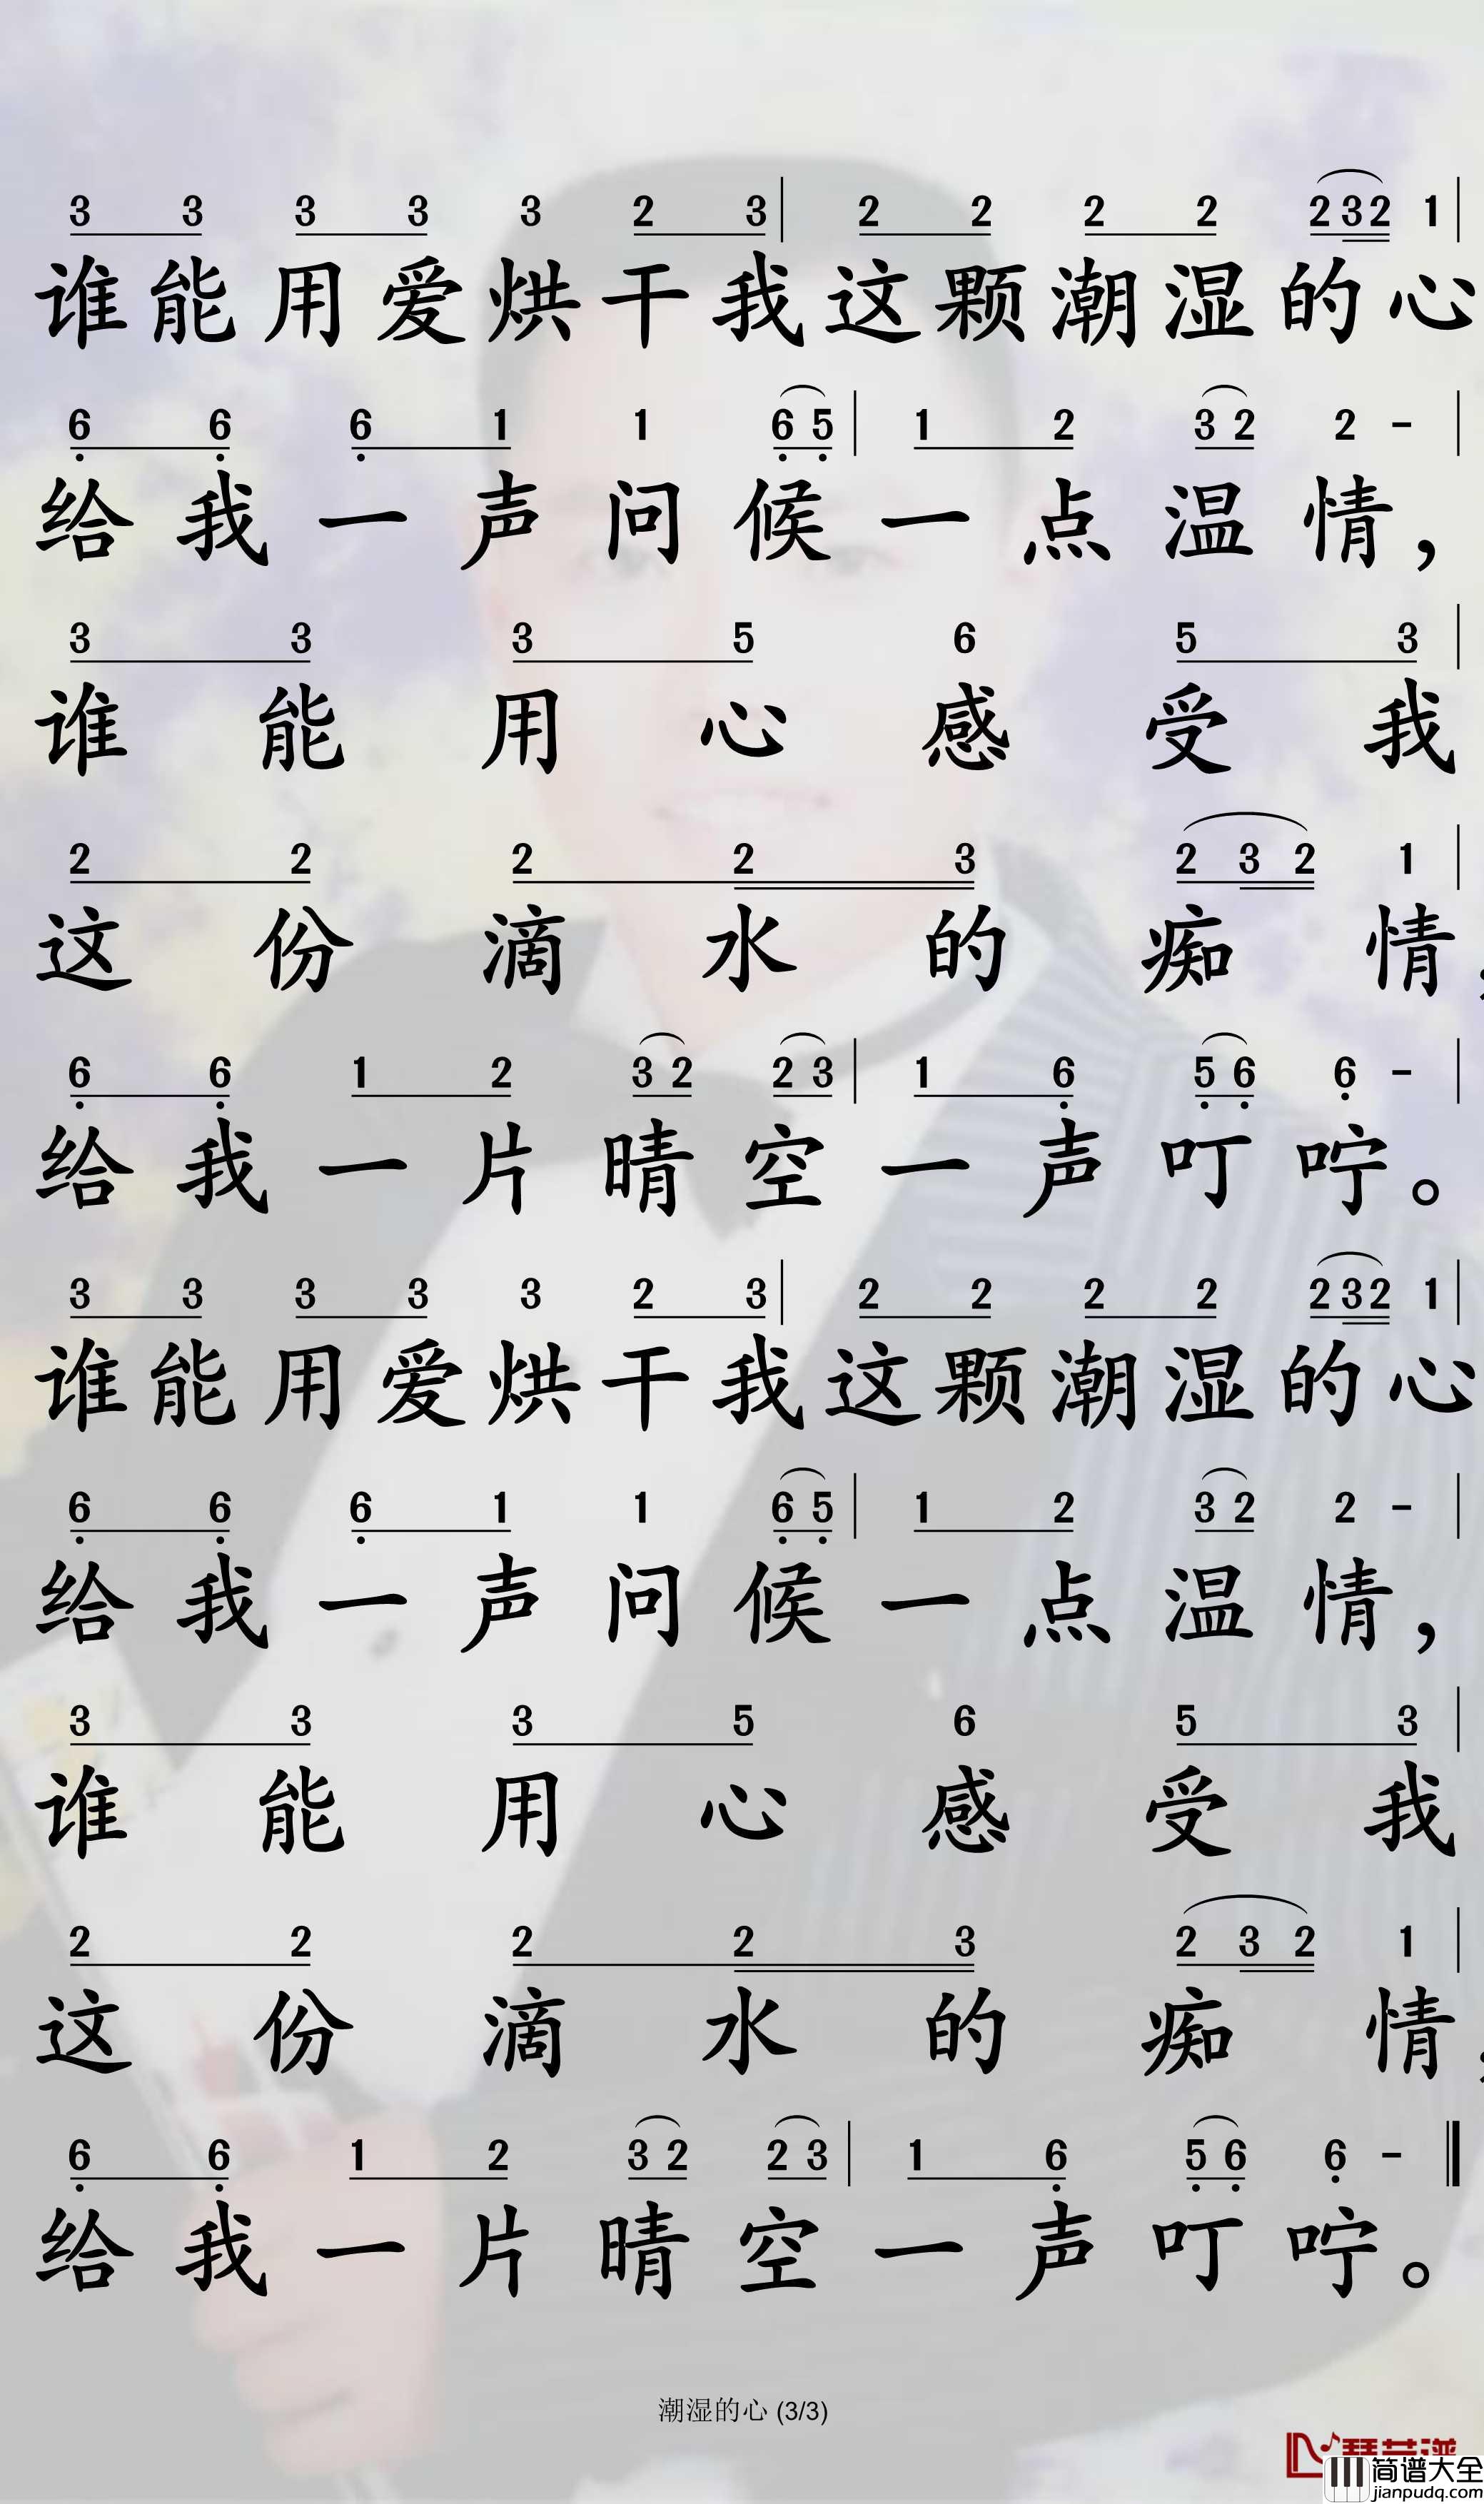 3 3 3 3 3 2 3 | 2 2 2 2 2 3 2 1 |
谁能用爱烘干我这颗潮湿的心
6 6 6 1 1 6 5 | 1 2 3 2 2 - |
给我一声问候一点温情，
3 3 3 5 6 5 3 |
谁能用心感受我
2 2 2 2 3 2 3 2 1 |
这份滴水的痴情，
6 6 1 2 3 2 2 3 | 1 6 5 6 6 - |
给我一片晴空一声叮咛。
3 3 3 3 3 2 3 | 2 2 2 2 2 3 2 1 |
谁能用爱烘干我这颗潮湿的心
6 6 6 1 1 6 5 | 1 2 3 2 2 - |
给我一声问候一点温情，
3 3 3 5 6 5 3 |
谁能用心感受我
2 2 2 2 3 2 3 2 1 |
这份滴水的痴情，
6 6 1 2 3 2 2 3 | 1 6 5 6 6 - ‖
给我一片晴空一声叮咛。
潮湿的心 (3/3)
简谱大全
jianpudq.com